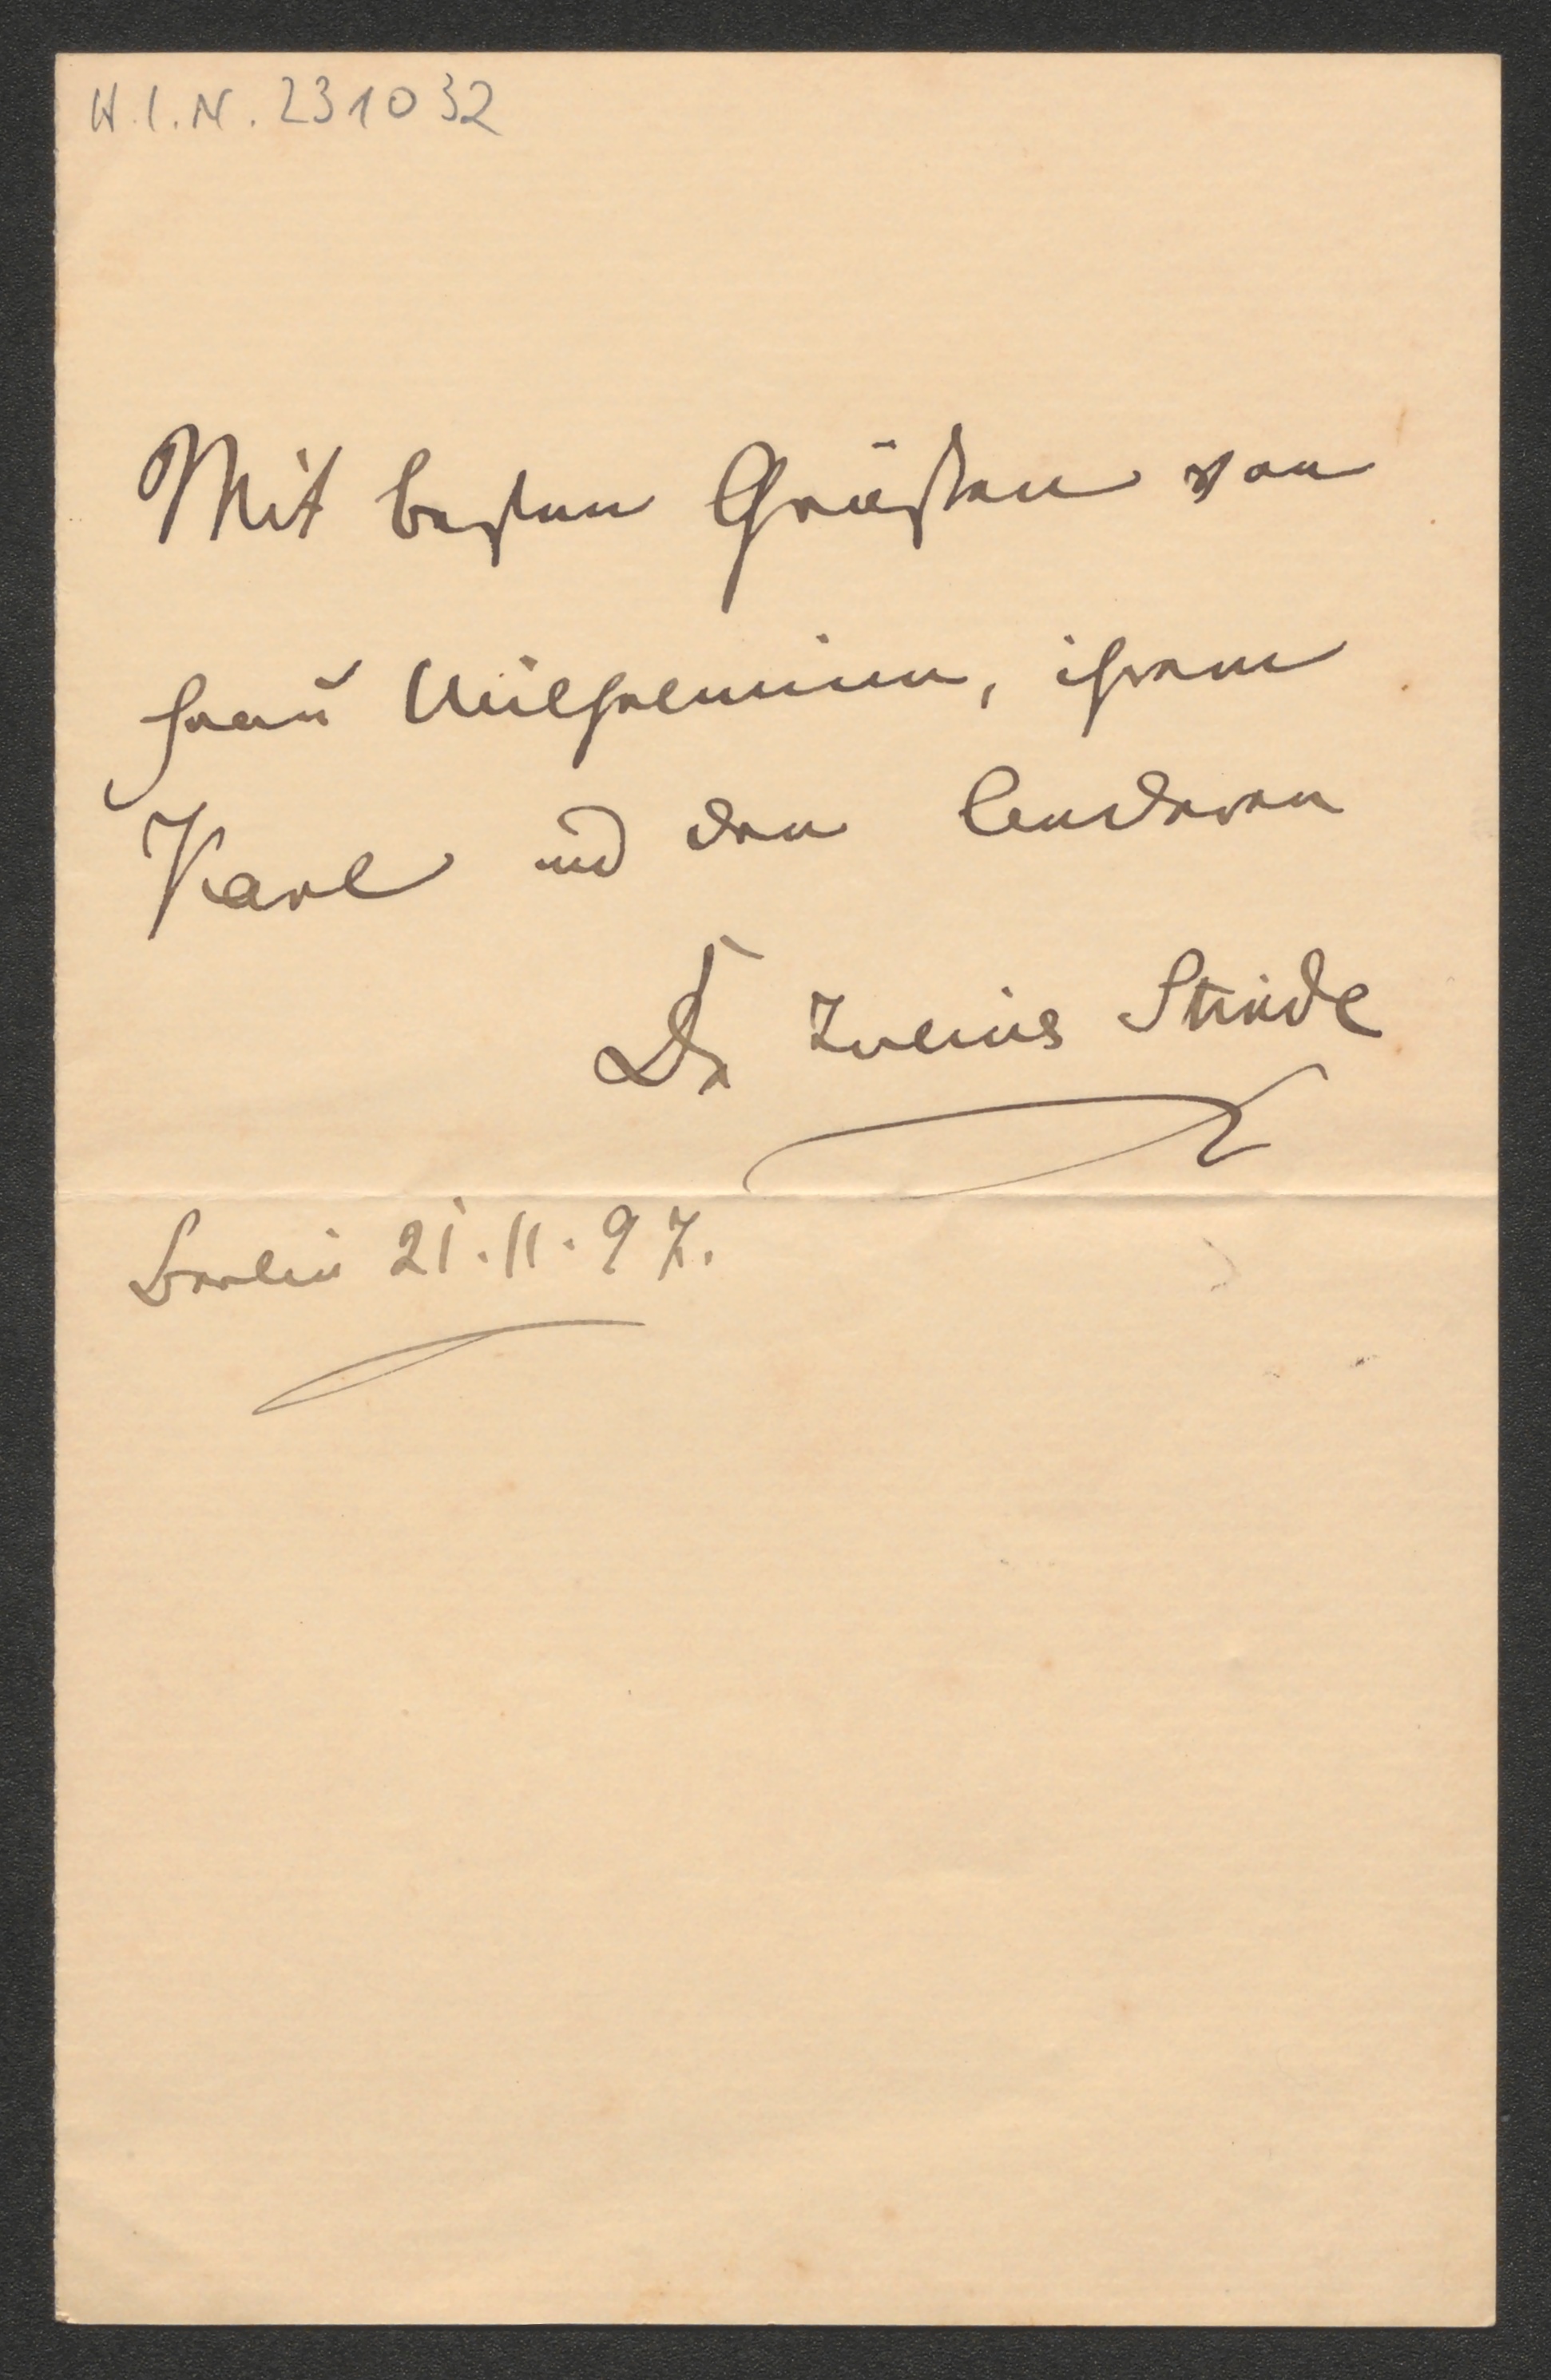 H.I.N. 231032
Mit besten Grüßen von
Frau Wilhelmine, ihrem
Karl und den Anderen
Dr Julius Stinde
Berlin 21.11.97.